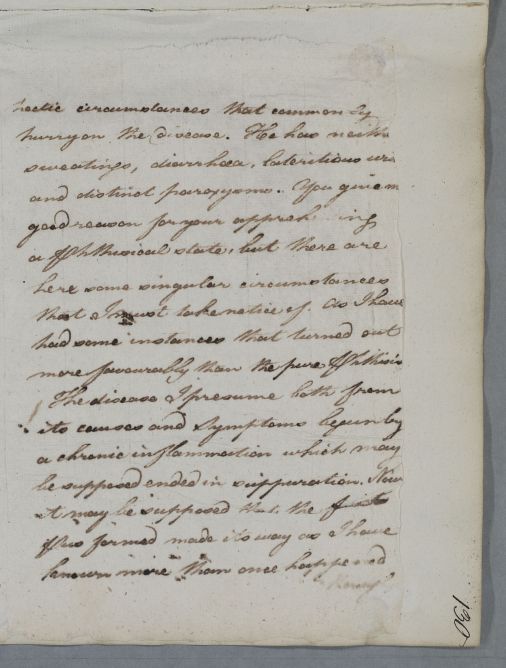 hectic circumstances that commonly
hurry on the disease. He has neith
sweatings, diarrhœa, lateritious uri
and distinct paroxysms. You give m
good reason for your appreh ing
a Phthisical state, but there are
here some singular circumstances
that I must take notice of. as I have
had some instances that turned out
more favourably than the pure Phthisis
The disease I presume both from
its causes and symptoms begun by
a chronic inflammation which may
be supposed ended in suppuration. Now
it may be supposed that the first
Pus formed made its way as I have
known more than once happened
190